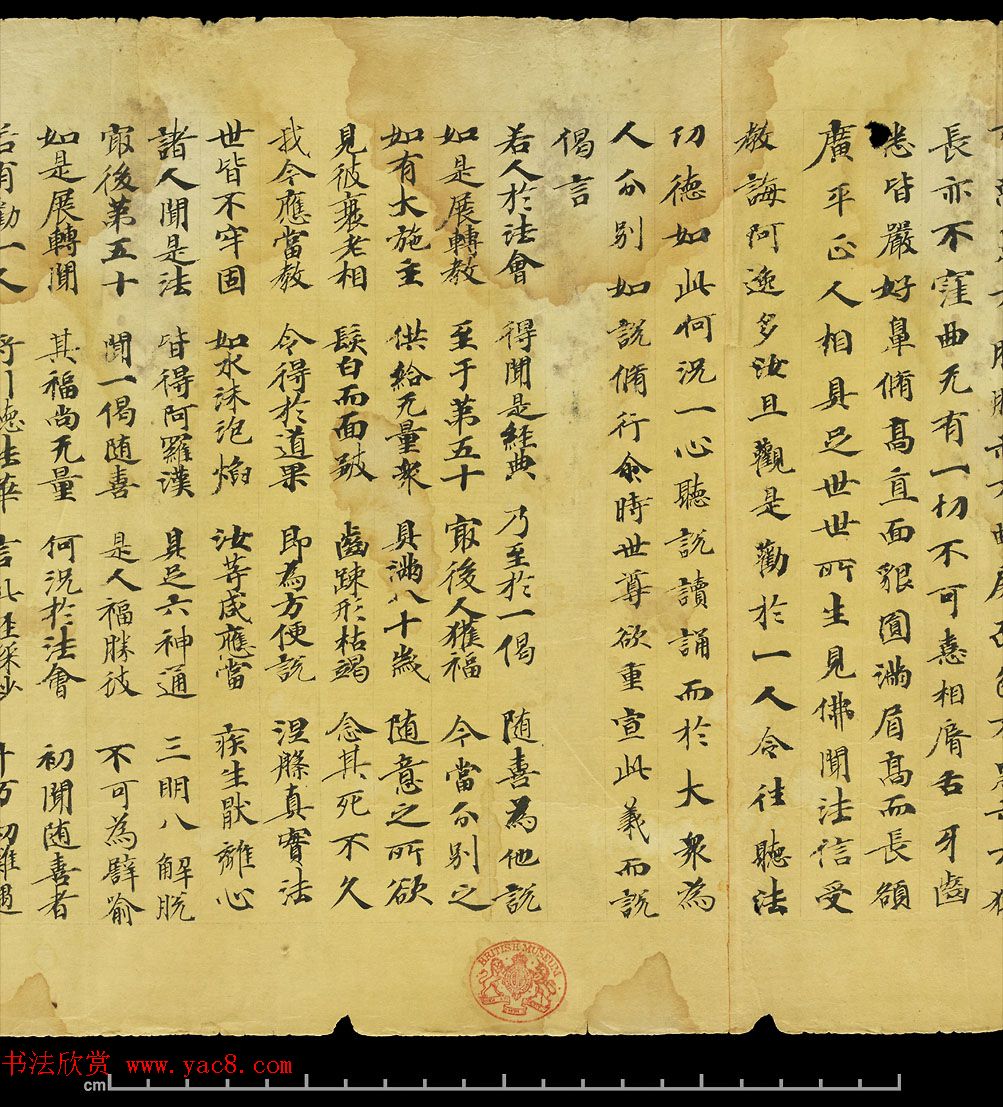 長亦不窪曲无有一切不可憙相脣舌牙齒
悉皆嚴好鼻脩高直面貌圓滿眉高而長額
廣平正人相具足世世所生見佛聞法信受
教誨阿逸多汝且觀是勸於一人令往聽法
功德如此何況一心聽說讀誦而於大衆為
人分別如說脩行尒時世尊欲重宣此義而說
偈言
若人於法會 得聞是經典 乃至於一偈 随喜為他說
如是展轉教 至于第五十 冣後人獲福 今當分別之
如有大施主 供給无量衆 具滿八十歲 随意之所欲
見彼衰老相 髮白而面皺 齒踈形枯竭 念其死不久
我今應當教 令得於道果 即為方便說 涅槃真實法
世皆不牢固 如水沫泡焰 汝等咸應當 疾生猒離心
諸人聞是法 皆得阿羅漢 具足六神通 三明八解脫
冣後第五十 聞一偈随喜 是人福勝彼 不可為譬喻
如是展轉聞 其福尚无量 何況於法會 初聞随喜者
若有勸一人 將引聽法華 言此經深妙 千万劫難遇
BRITISH MUSEUM
书法欣赏 www.yac8.com
cm